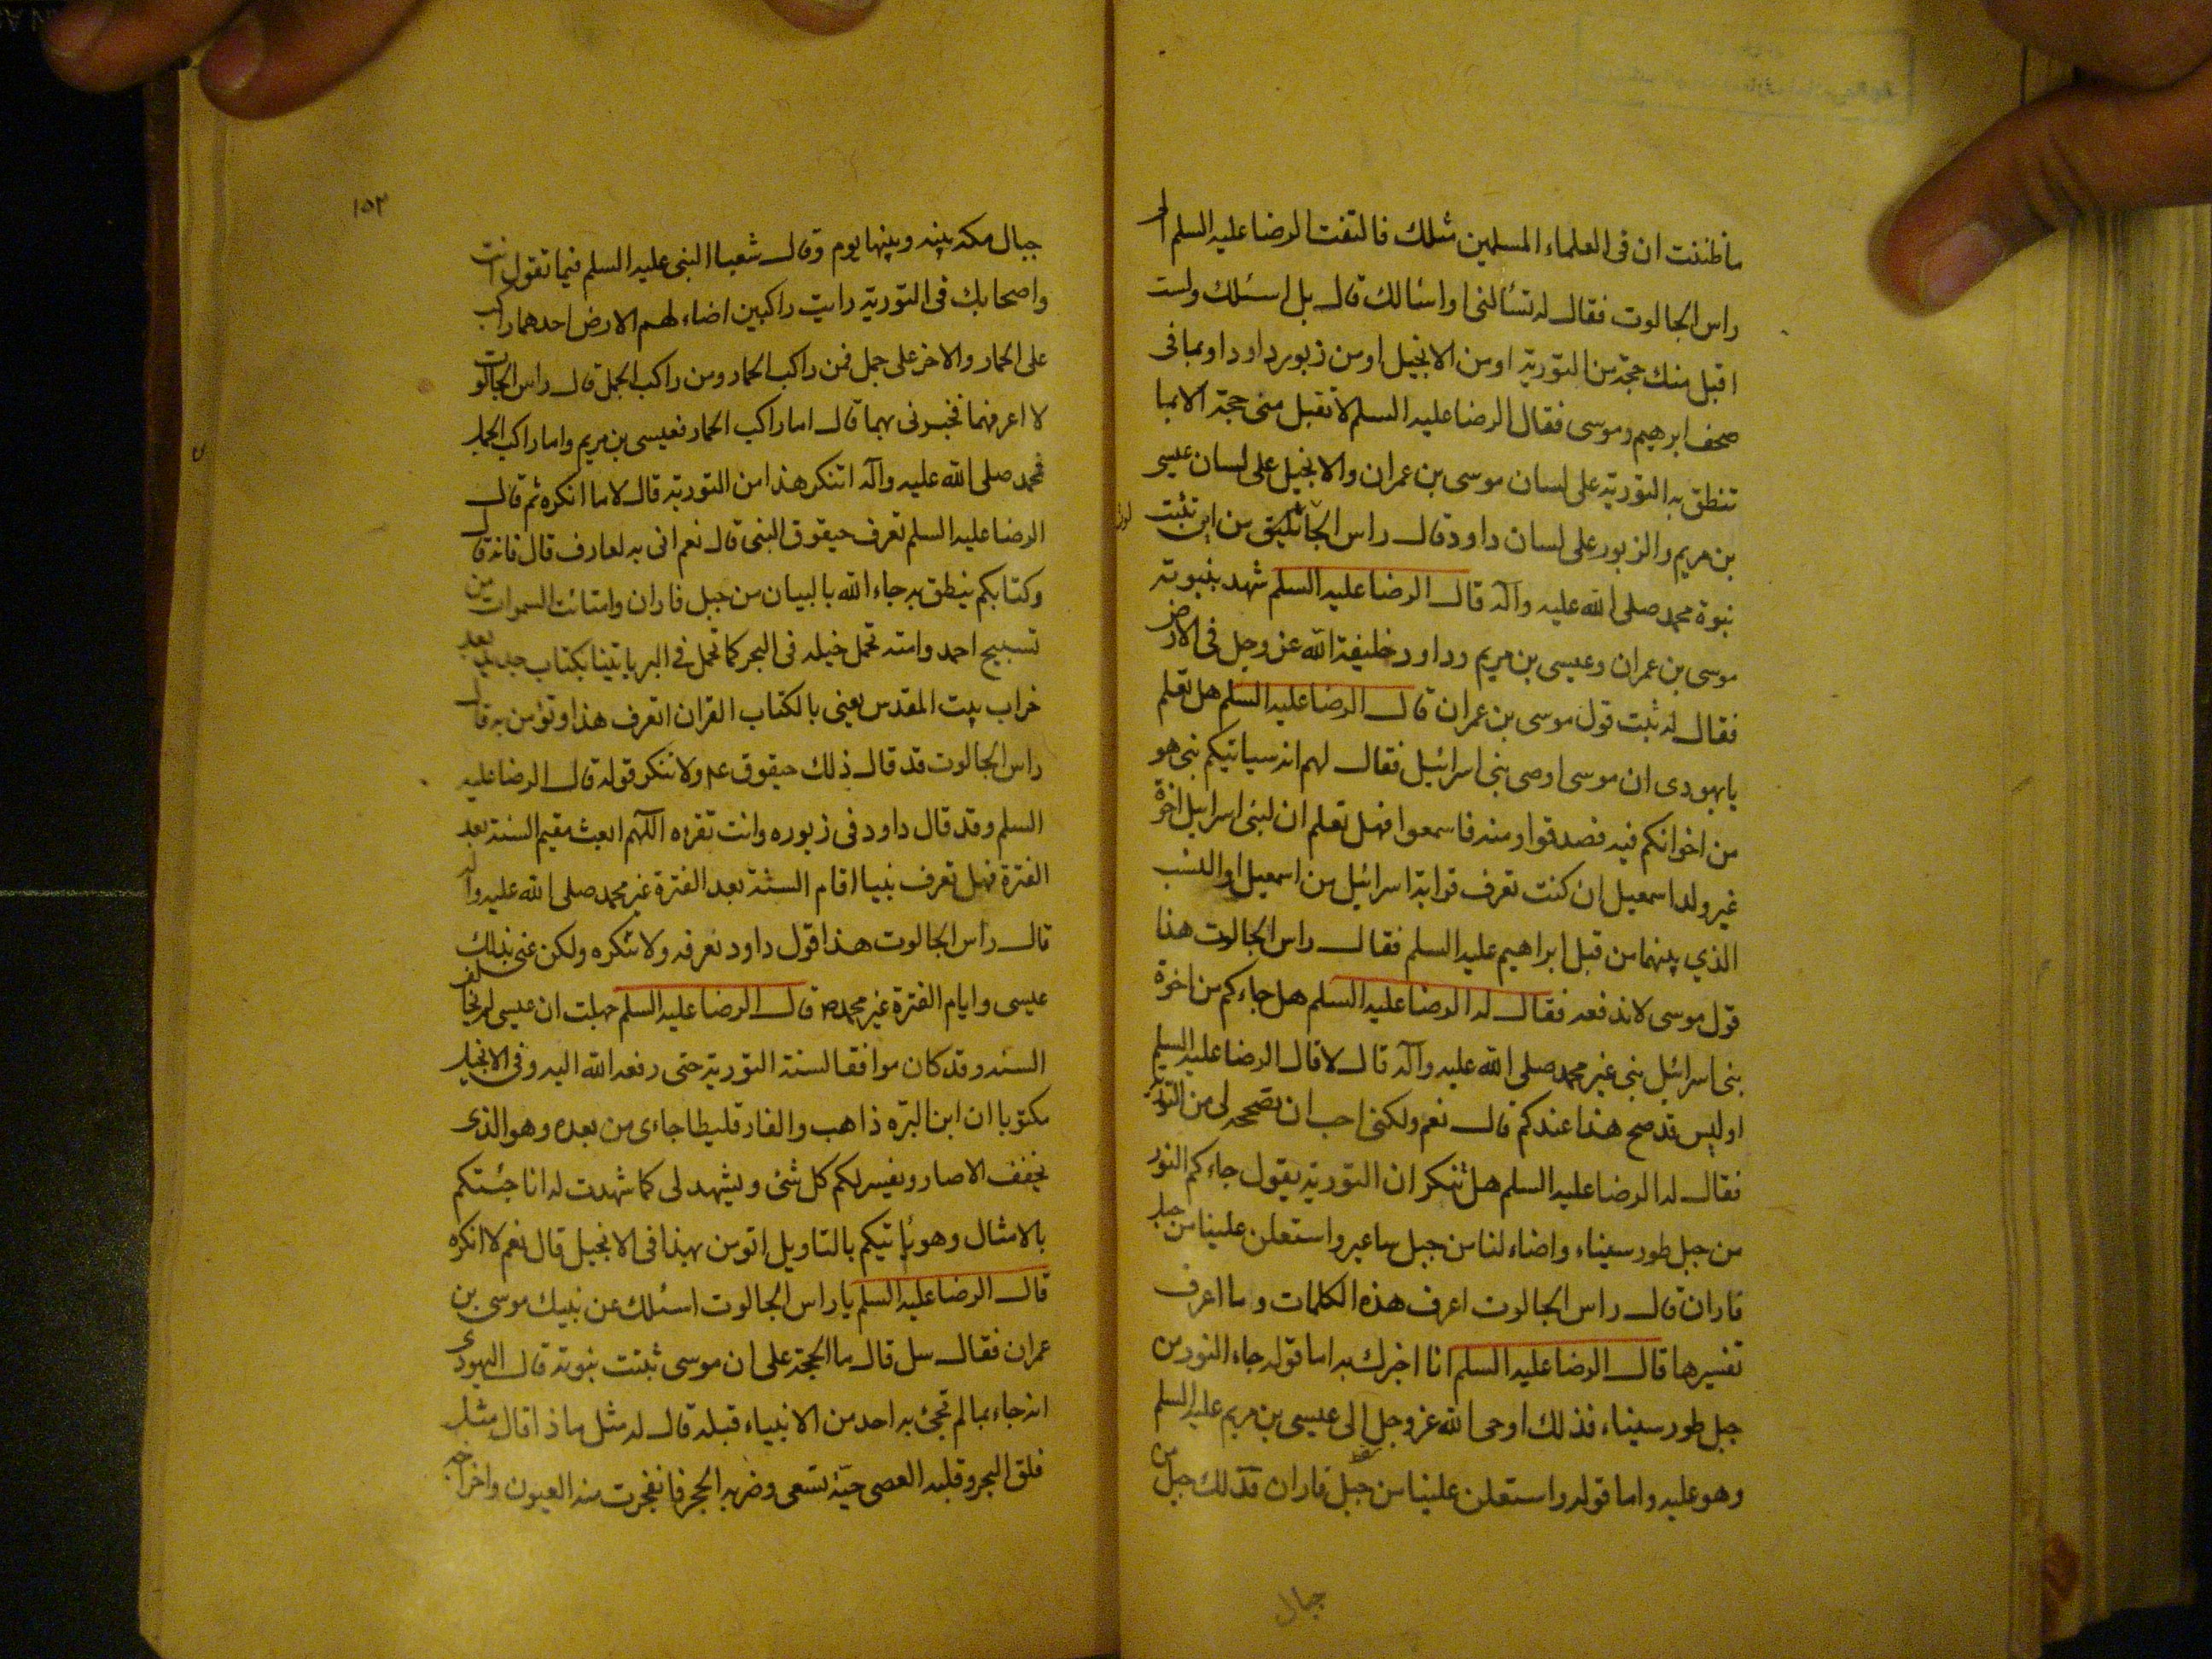 ما ظننت ان فى العلماء المسلمين مثلك فالتفت الرضا عليه السلم الى
راس الجالوت فقال له تسألنى او اسألك قال بل اسئلك ولست
اقبل منك حجة من التورية او من الانجيل او من زبور داود او بما فى
صحف ابرهيم و موسى فقال الرضا عليه السلم لا تقبل منى حجة الا بما
تنطق به التورية على لسان موسى بن عمران والانجيل على لسان عيسى
بن مريم والزبور على لسان داود قال راس الجاثليق من اين تثبت
لوت
نبوة محمد صلى الله عليه وآله قال الرضا عليه السلم شهد بنبوته
موسى بن عمران و عيسى بن مريم و داود خليفة الله عز وجل فى الارض
فقال له ثبت قول موسى بن عمران قال الرضا عليه السلم هل تعلم
يا يهودى ان موسى اوصى بنى اسرائيل فقال لهم انه سياتيكم نبى هو
من اخوانكم فيه فصدقوا ومنه فاسمعوا فهل تعلم ان لبنى اسرائيل اخوة
غير ولد اسمعيل ان كنت تعرف قرابة اسرائيل من اسمعيل او النسب
الذي بينهما من قبل ابراهيم عليه السلم فقال راس الجالوت هذا
قول موسى لا ندفعه فقال له الرضا عليه السلم هل جاءكم من اخوة
بنى اسرائيل نبى غير محمد صلى الله عليه وآله قال لا قال الرضا عليه السلم
او ليس قد صح هذا عندكم قال نعم ولكنى احب ان تصححه لى من التورية
فقال له الرضا عليه السلم هل تنكر ان التورية يقول جاءكم النور
من جبل طور سيناء واضاء لنا من جبل ساعير واستعلن علينا من جبل
فاران قال راس الجالوت اعرف هذه الكلمات وما اعرف
تفسيرها قال الرضا عليه السلم انا اخبرك به اما قوله جاء النور من
جبل طور سيناء فذلك اوحى الله عز وجل الى عيسى بن مريم عليه السلم
وهو عليه واما قوله واستعلن علينا من جبل فاران فذلك جبل من
جبال
١٥٢
جبال مكه بينه وبينها يوم وقال شعيا النبى عليه السلم فيما تقول انت
واصحابك فى التورية رايت راكبين اضاء لهم الارض احدهما راكب
على الحمار والاخر على جمل فمن راكب الحمار ومن راكب الجمل قال راس الجالوت
لا اعرفهما فخبرنى بهما قال اما راكب الحمار فعيسى بن مريم واما راكب الجمل
فمحمد صلى الله عليه وآله اتنكر هذا من التورية قال لا ما انكره ثم قال
الرضا عليه السلم تعرف حيقوق النبى قال نعم انى به لعارف قال فانه قال
وكتابكم ينطق به جاء الله بالبيان من جبل فاران وامتائت السموات من
تسبيح احمد وامته تحمل خيله فى البحر كما تحمل فى البر ياتينا بكتاب جديد بعد
خراب بيت المقدس يعنى بالكتاب القران اتعرف هذا وتؤمن به قال
راس الجالوت قد قال ذلك حيقوق ع‍م ولا ننكر قوله قال الرضا عليه
السلم وقد قال داود فى زبوره وانت تقرءه اللهم ابعث مقيم السنة بعد
الفترة فهل تعرف نبيا اقام السنة بعد الفترة غير محمد صلى الله عليه واله
قال راس الجالوت هذا قول داود نعرفه ولا ننكره ولكن عنى بذلك
عيسى و ايام الفترة غير محمد ص قال الرضا عليه السلم جهلت ان عيسى لم يخالف
السنه وقد كان موافقا لسنة التورية حتى رفعه الله اليه وفى الانجيل
مكتوبا ان ابن البرّه ذاهب والفارقليطا جاءى من بعده وهو الذى
يخفف الاصار ويفسر لكم كل شئ ويشهد لى كما شهدت له انا جئتكم
بالامثال وهو يأتيكم بالتاويل اتومن بهذا فى الانجيل قال نعم لا انكره
قال الرضا عليه السلم يا راس الجالوت اسئلك عن نبيك موسى بن
عمران فقال سل قال ما الحجة على ان موسى ثبتت نبوته قال اليهودى
انه جاء بما لم تجئ به احد من الانبياء قبله قال له مثل ماذا قال مثل
فلق البحر وقلبه العصى حيّة تسعى وضربه الحجر فانفجرت منه العيون واخراجه